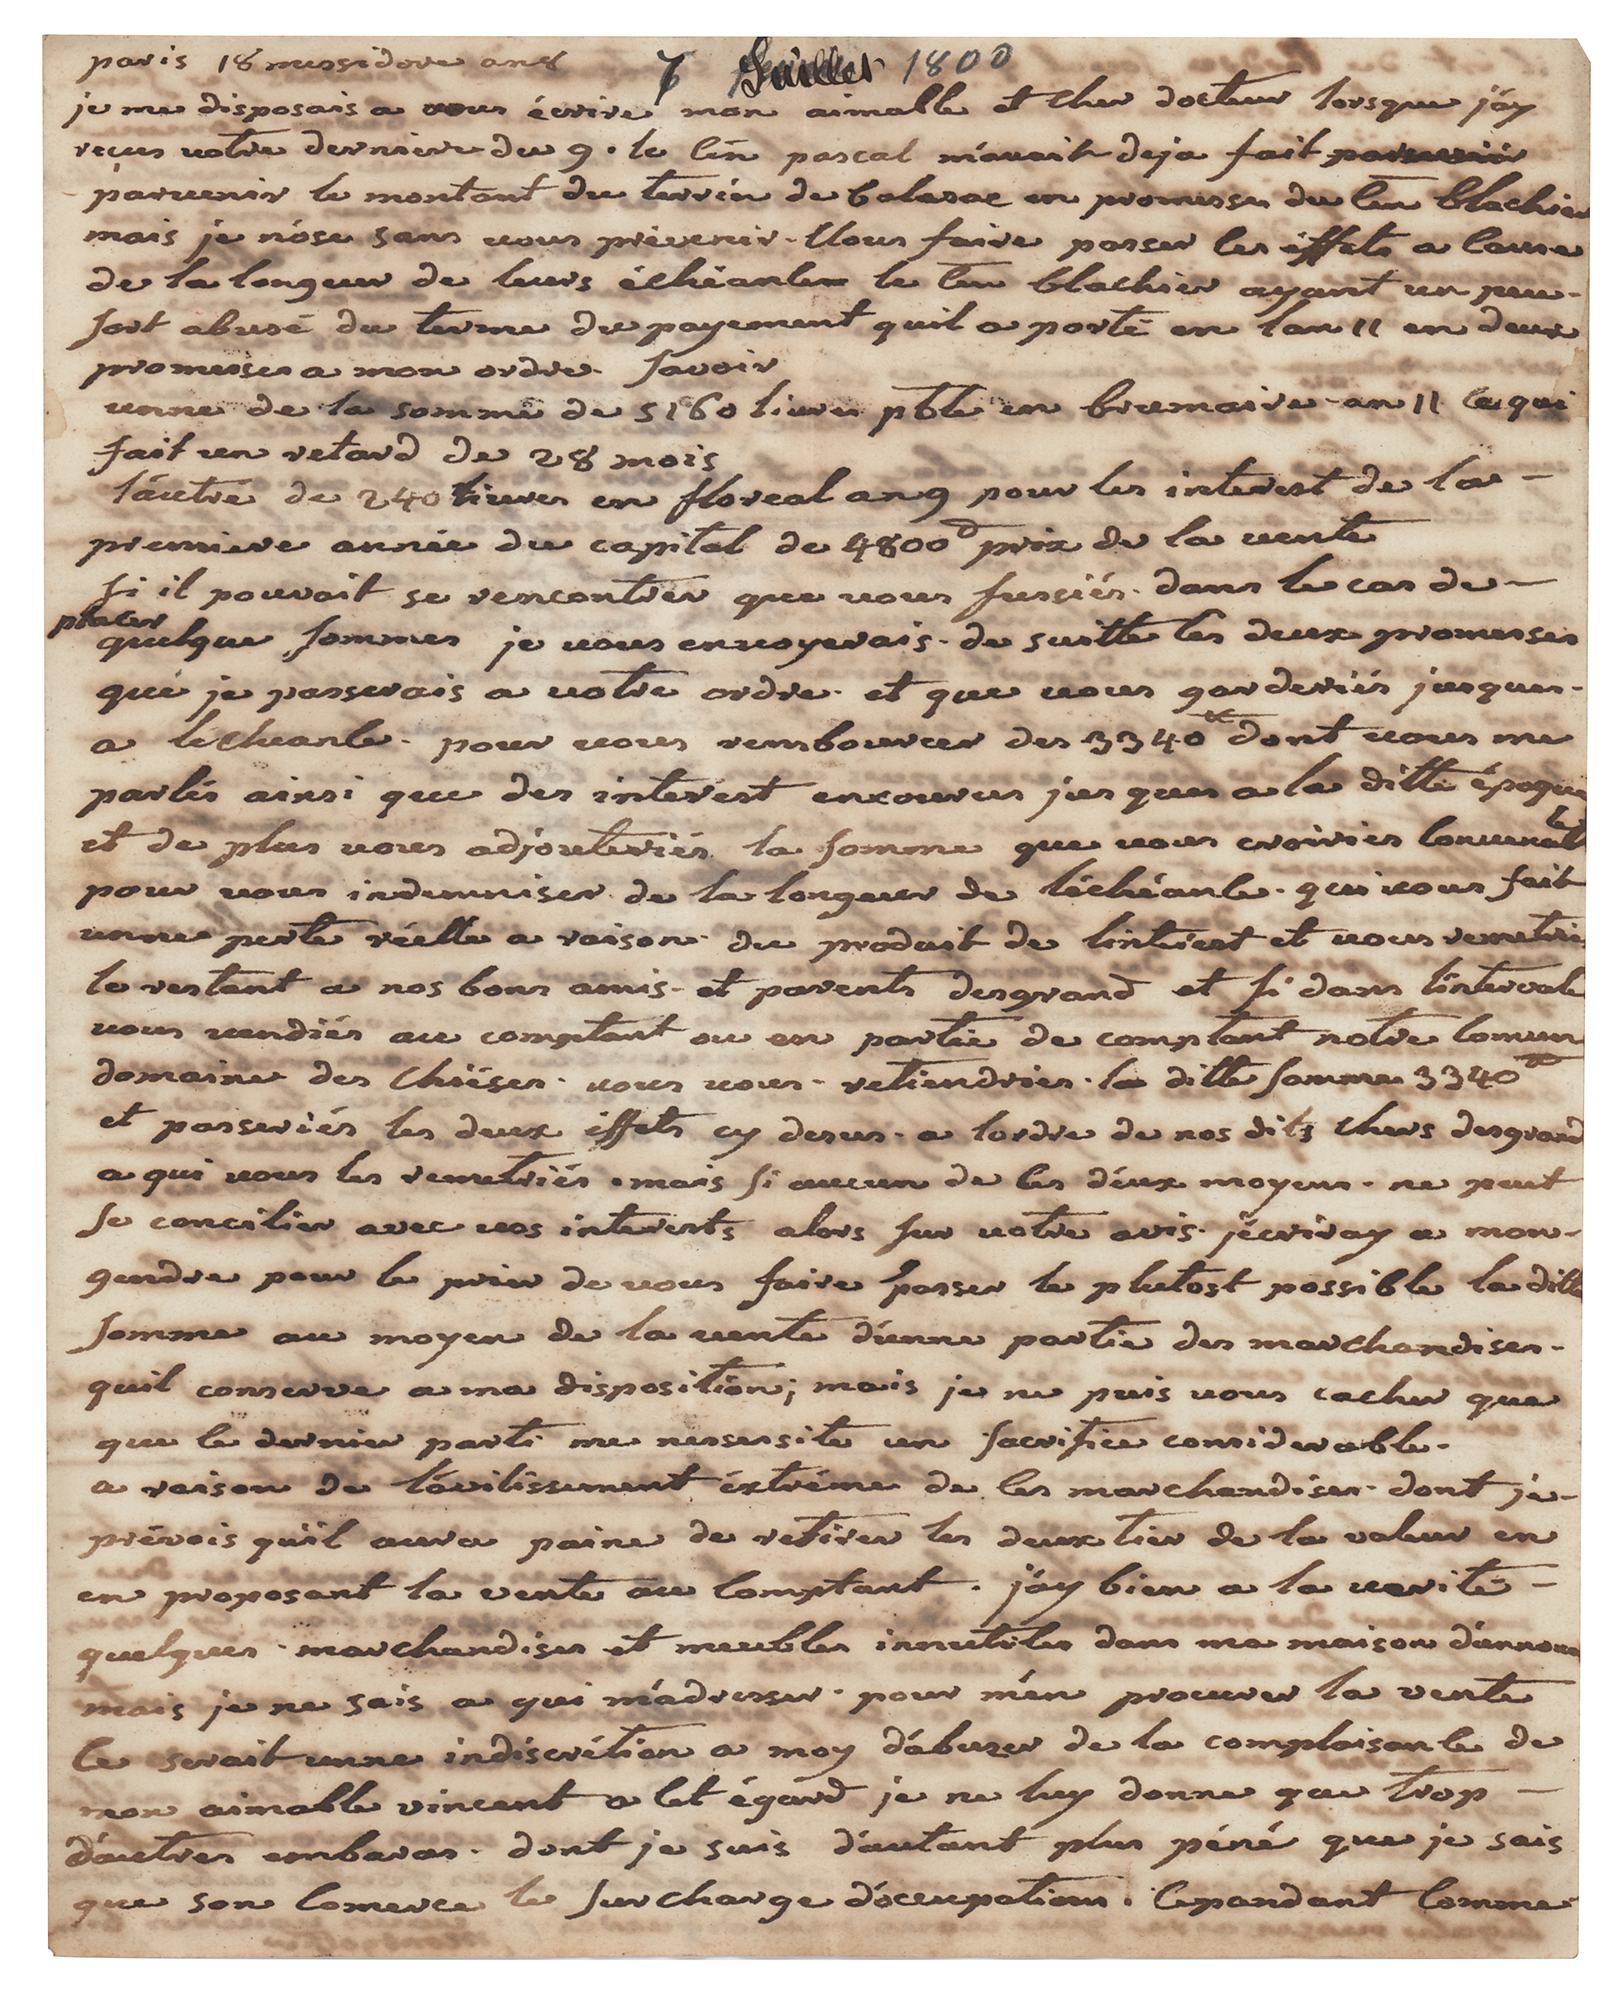 paris 18 messidore an 8 7 Juillet 1800
je me disposais a vous écrire mon aimable et cher docteur lorsque j'ay
reçus votre derniere du 9. le Cen pascal m'avait deja fait
parvenir le montant du terrein de balasac en promesse du Cen blachier
mais je n'ose sans vous prévenir. Vous faire passer les effets a cause
de la longeur de leurs échéance le Cen blachier ayant un peu
fort abusé du terme du payement quil a porté en lan 11 en deux
promesses a mon ordre. Savoir
unne de la somme de 5160 livres pble en brumaire an 11 Ce qui
fait un retard de 28 mois
l'autre de 240 livres en floreal an 9 pour les interest de la
premiere année du capital de 4800 prix de la vente
si il pouvait se rencontrer que vous fussiés dans le cas de
placer quelque sommes je vous envoyerais de suitte les deux promesses
que je passerais a votre ordre. et que vous garderiés jusques
a lecheance. pour vous rembourcer des 3340 tt dont vous me
parlés ainsi que des interest encourus jusques a la ditte époque
et de plus vous adjouteriés la somme que vous croiriés convenable
pour vous indemniser de la longeur de l'échéance. qui vous fait
unne perte réelle a raison du produit de linterest et vous remetrié
le restant a nos bons amis et parents desgrand et si dans lintervale
vous vendiés au comptant ou en partie de comptant notre comun
domaine des Chiéses. vous vous retiendries la ditte somme 3340
et passeriés les deux effets cy desus a lordre de nos dits chers desgrand
a qui vous les remetriés. mais si aucun de ces déux moyens ne peut
se concilier avec vos interests alors sur votre avis j'écriray a mon
gendre pour le prier de vous faire passer le plutost possible la ditte
somme au moyen de la vente d'unne partie des marchandises
quil conserve a ma disposition; mais je ne puis vous cacher que
que ce dernier parti me nessessite un sacrifice considerable.
a raison de l'avilissement éxtréme de ces marchandises. dont je
prévois qu'il aura paine de retirer les deux tier de la valeur en
en proposant la vente au comptant. j'ay bien a la verité
quelques marchandises et meubles innutiles dans ma maison d'annonay
mais je ne sais a qui m'adresser. pour m'én procurer la vente
Ce serait unne indiscrétion a moy d'abuser de la complaisance de
mon aimable vincent a cet égard je ne luy donne que trop
d'autres embaras. dont je suis d'autant plus péné que je sais
que son comerce le surcharge d'ocupations. Cepandant Comme